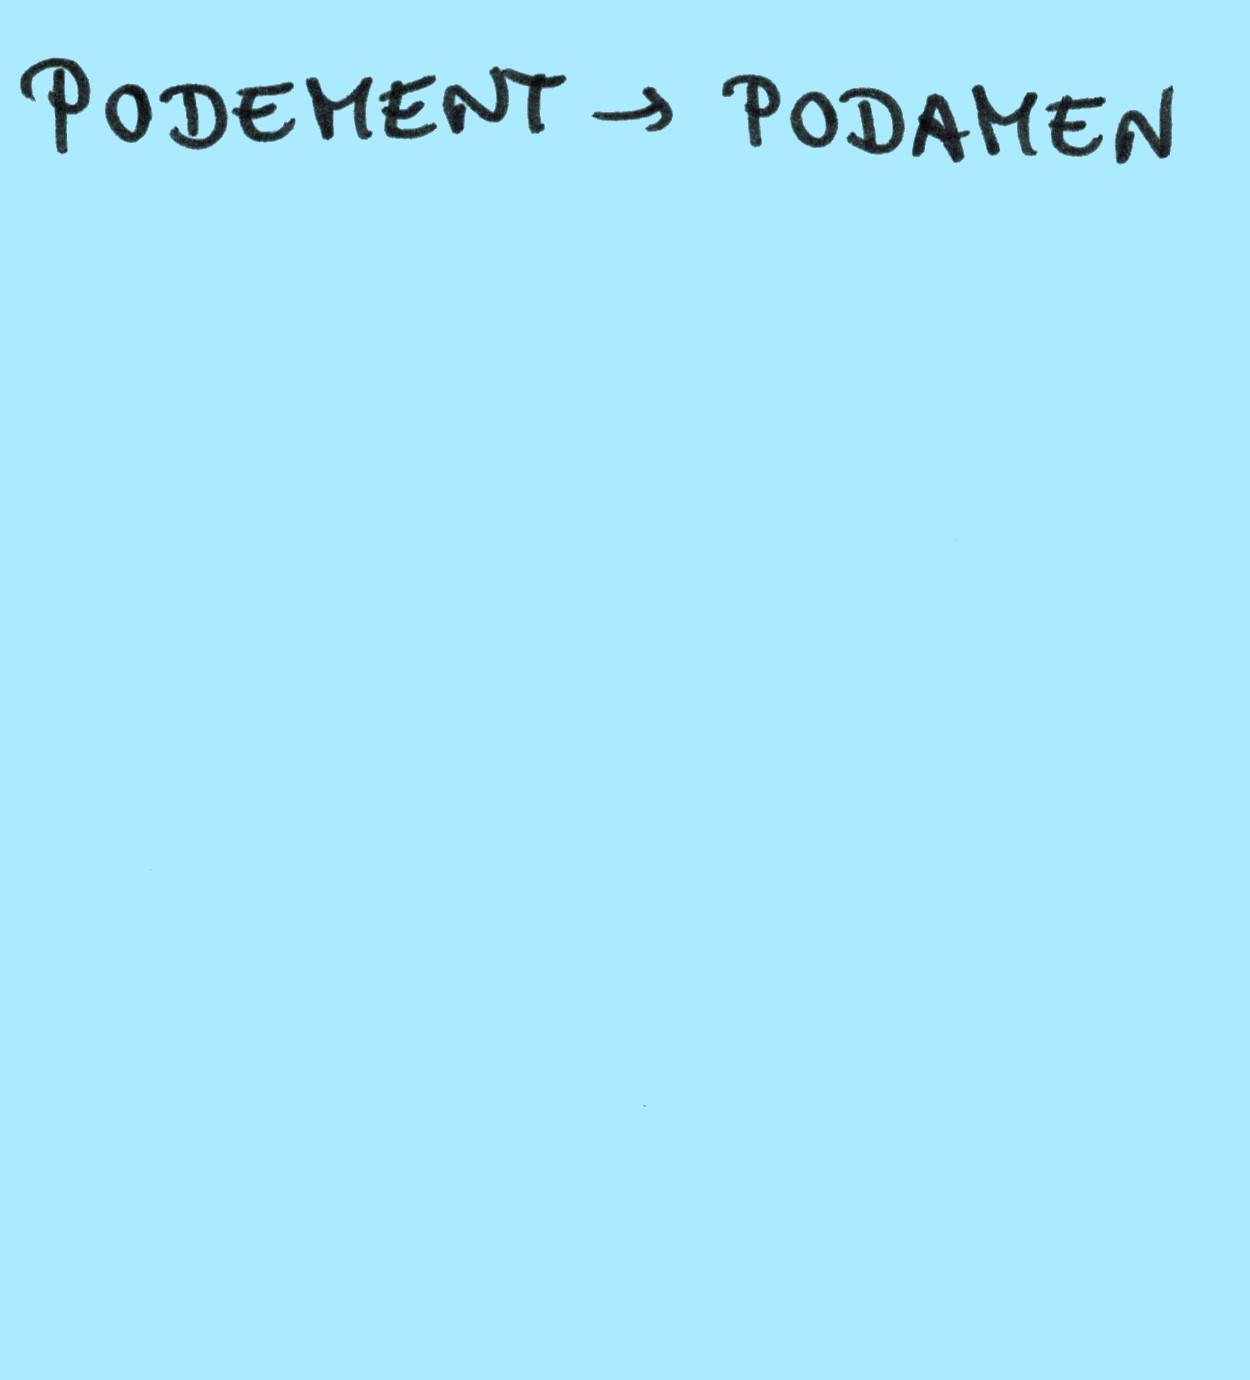 PODEMENT → PODAMEN